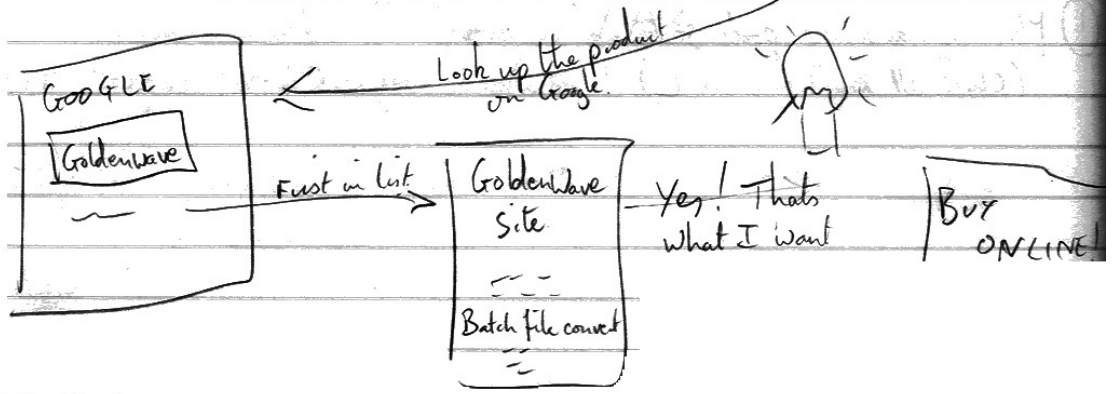 Look up the product
on Google.
GOOGLE
Goldenwave
First in list
GoldenWave
Site
Batch file convert
Yes! Thats
what I want
BUY
ONLINE!